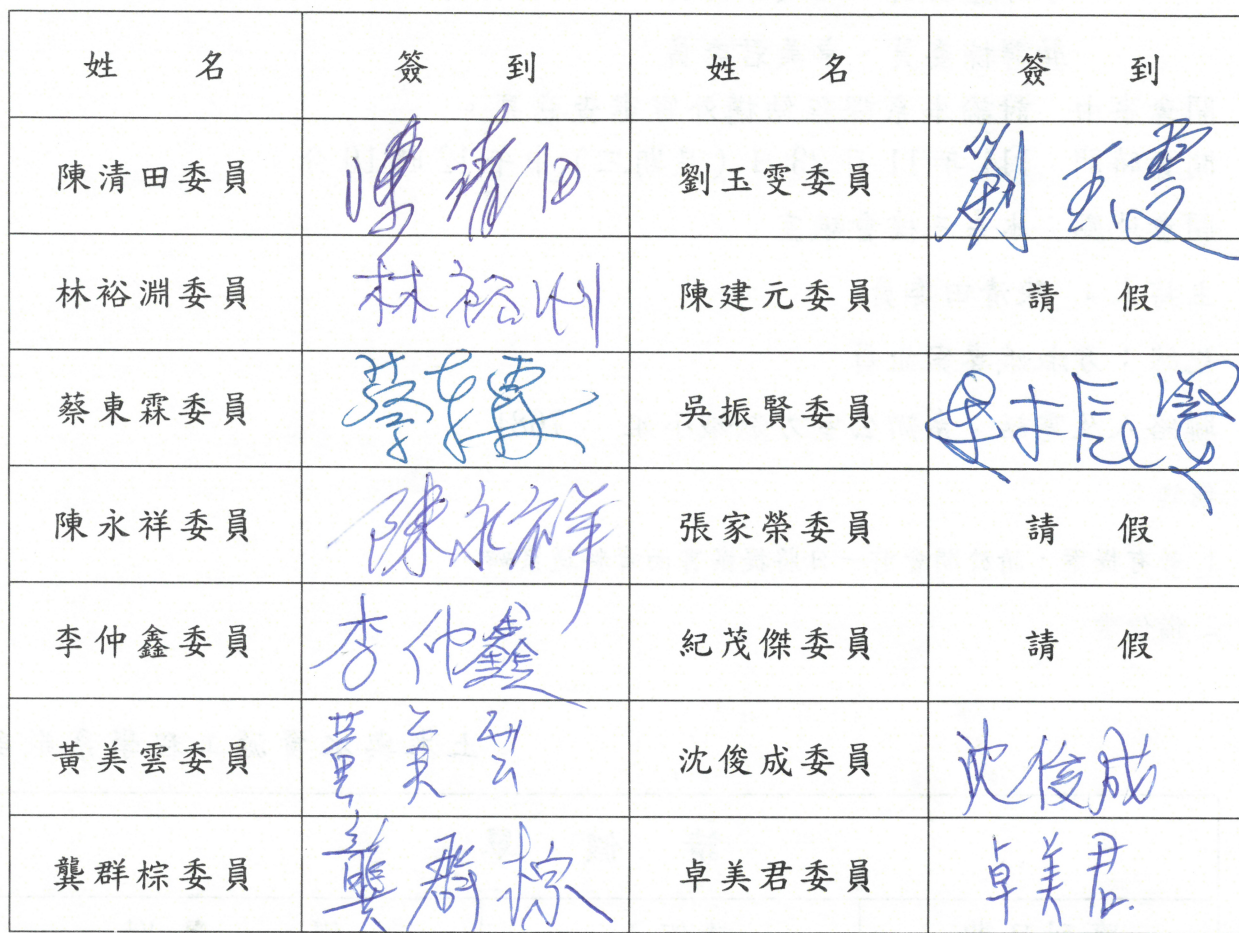 姓 名 簽 到 姓 名 簽 到
陳清田委員 陳清田 劉玉雯委員 劉玉雯
林裕淵委員 林裕渊 陳建元委員 請 假
蔡東霖委員 蔡東霖 吳振賢委員 吳振賢
陳永祥委員 陳永祥 張家榮委員 請 假
李仲鑫委員 李仲鑫 紀茂傑委員 請 假
黃美雲委員 黃美雲 沈俊成委員 沈俊成
龔群棕委員 龔群棕 卓美君委員 卓美君